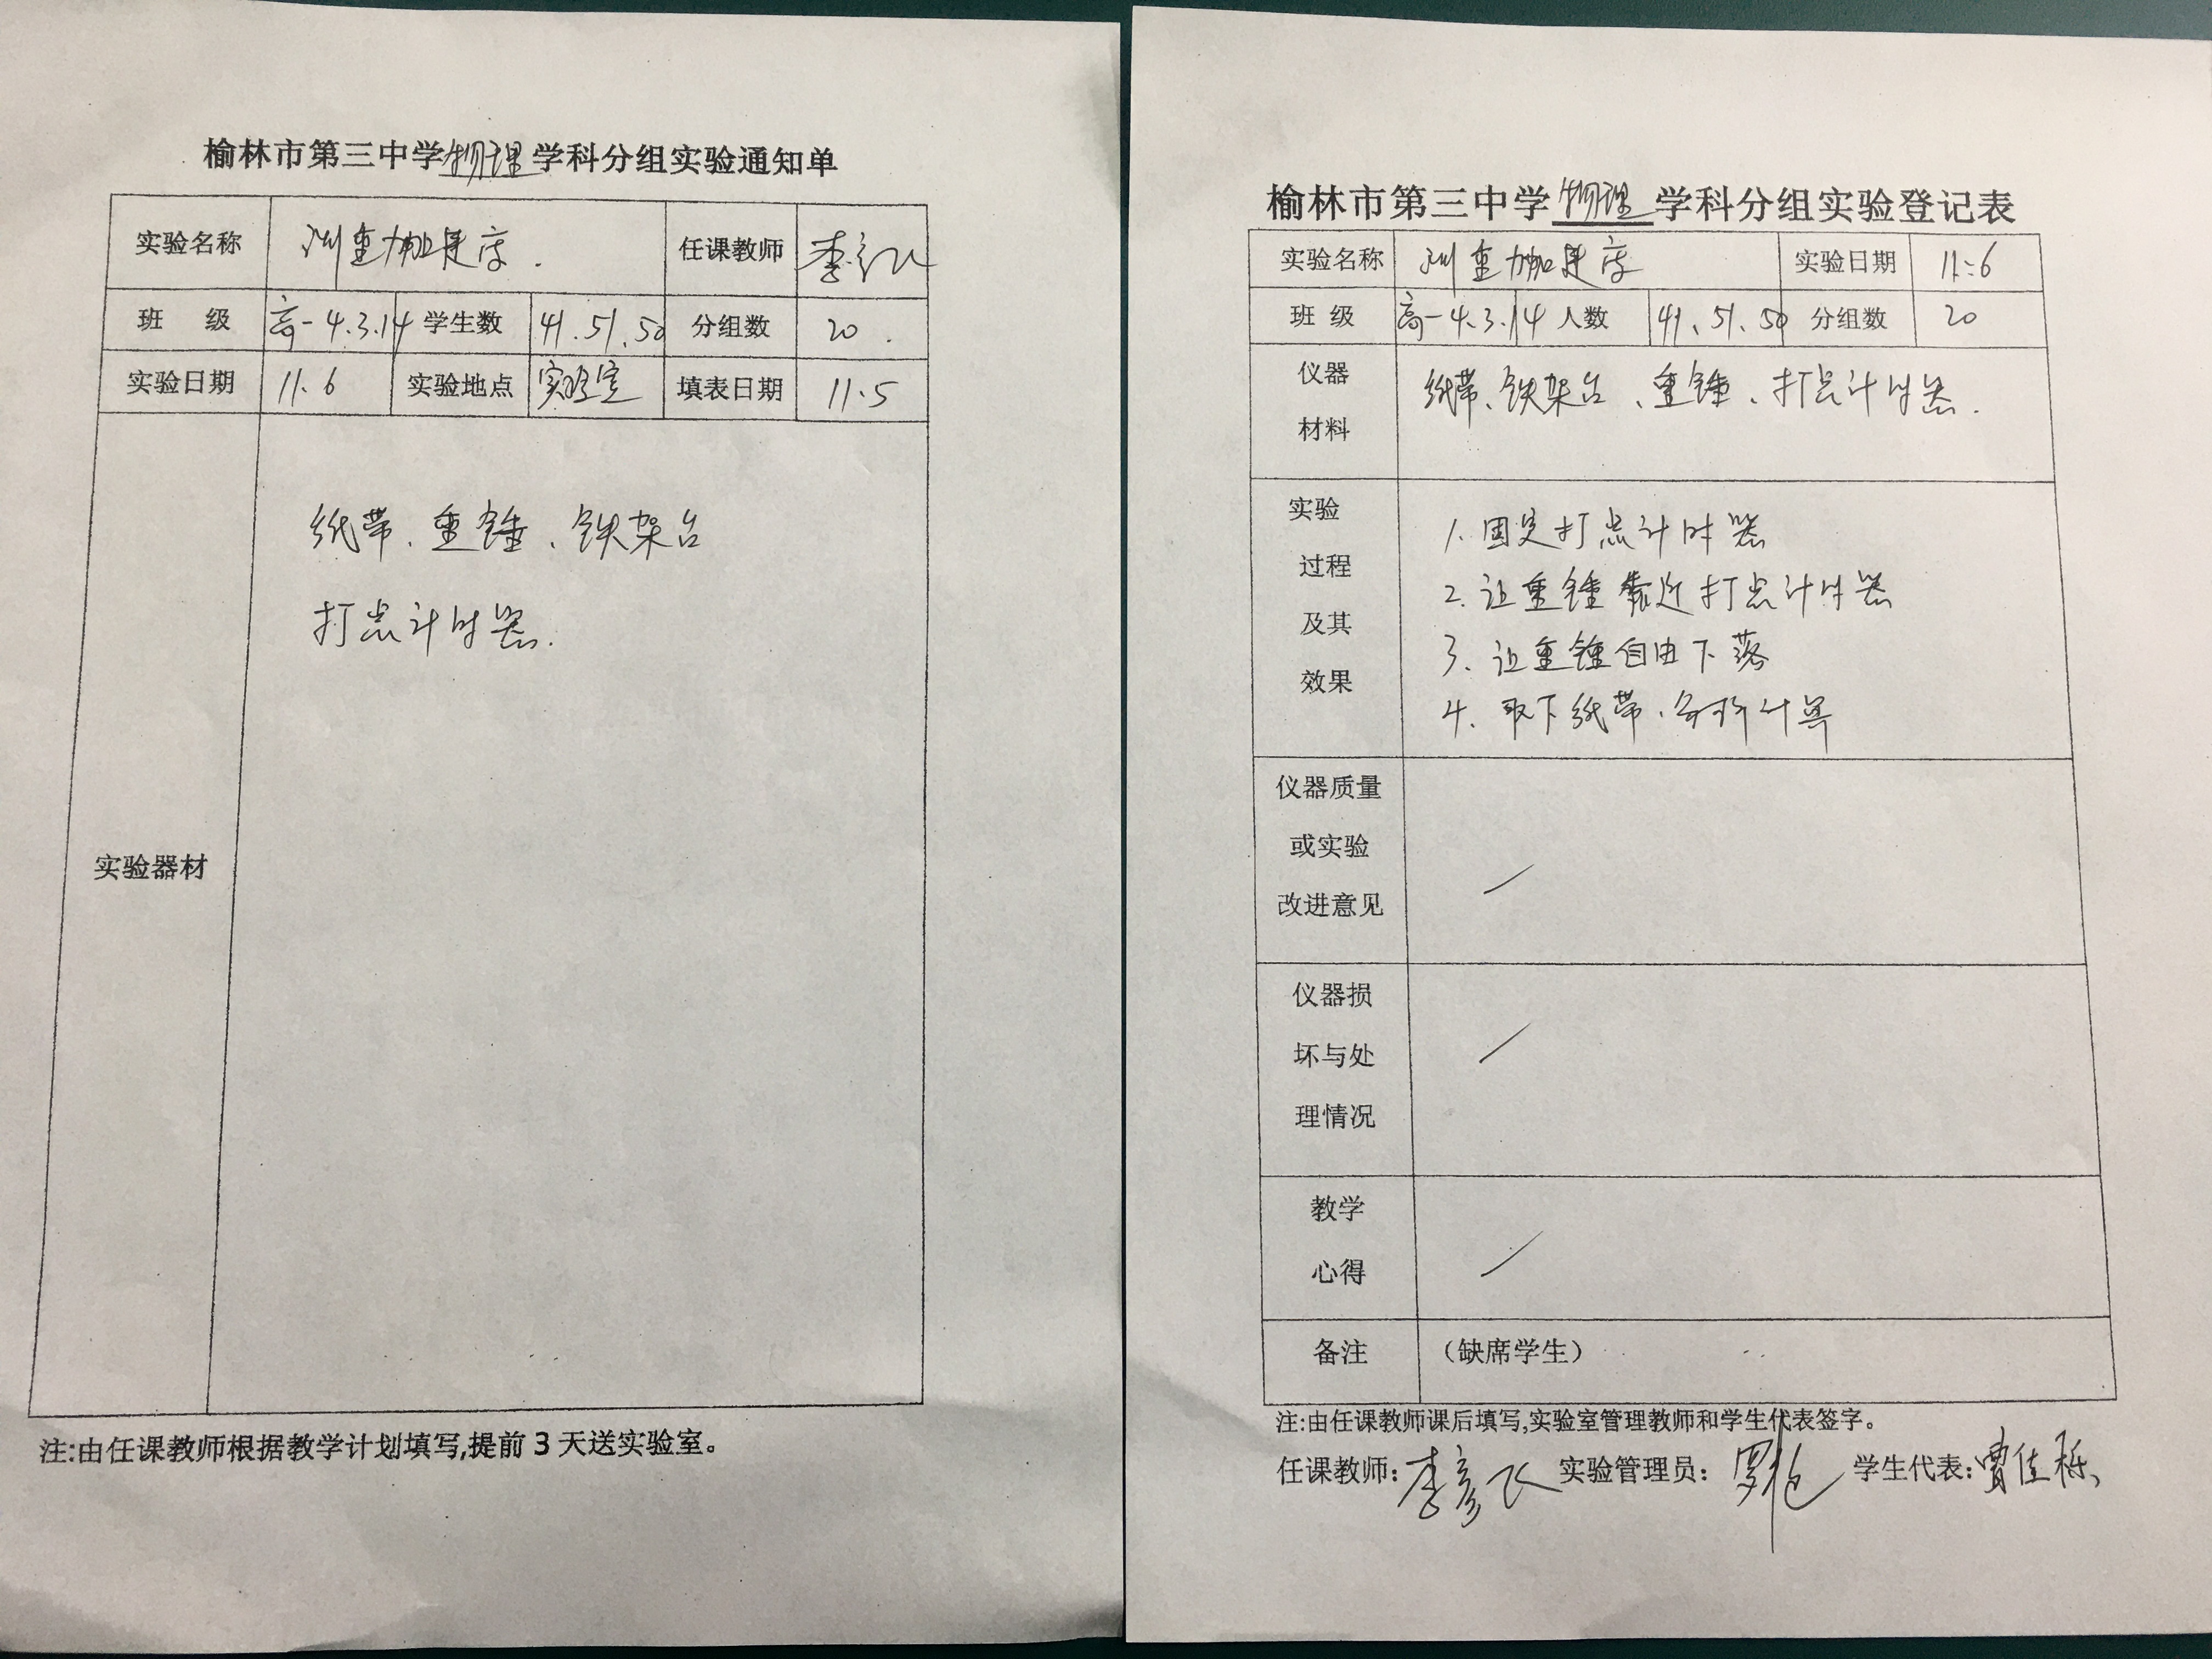 榆林市第三中学物理学科分组实验通知单
实验名称 测重力加速度. 任课教师
班 级 高一4.3.14 学生数 41.51.50 分组数 20.
实验日期 11.6 实验地点 实验室 填表日期 11.5
实验器材
纸带、重锤、铁架台
打点计时器.
注:由任课教师根据教学计划填写,提前3天送实验室。
榆林市第三中学物理学科分组实验登记表
实验名称 测重力加速度 实验日期 11.6
班 级 高一4.3.14 人数 41、51、50 分组数 20
仪器
材料
纸带、铁架台、重锤、打点计时器.
实验
过程
及其
效果
1.固定打点计时器
2.让重锤靠近打点计时器
3、让重锤自由下落
4、取下纸带、分析计算
仪器质量
或实验
改进意见
/
仪器损
坏与处
理情况
/
教学
心得
/
备注 (缺席学生)
注:由任课教师课后填写,实验室管理教师和学生代表签字。
任课教师: 李彦 实验管理员: 罗 学生代表: 佳